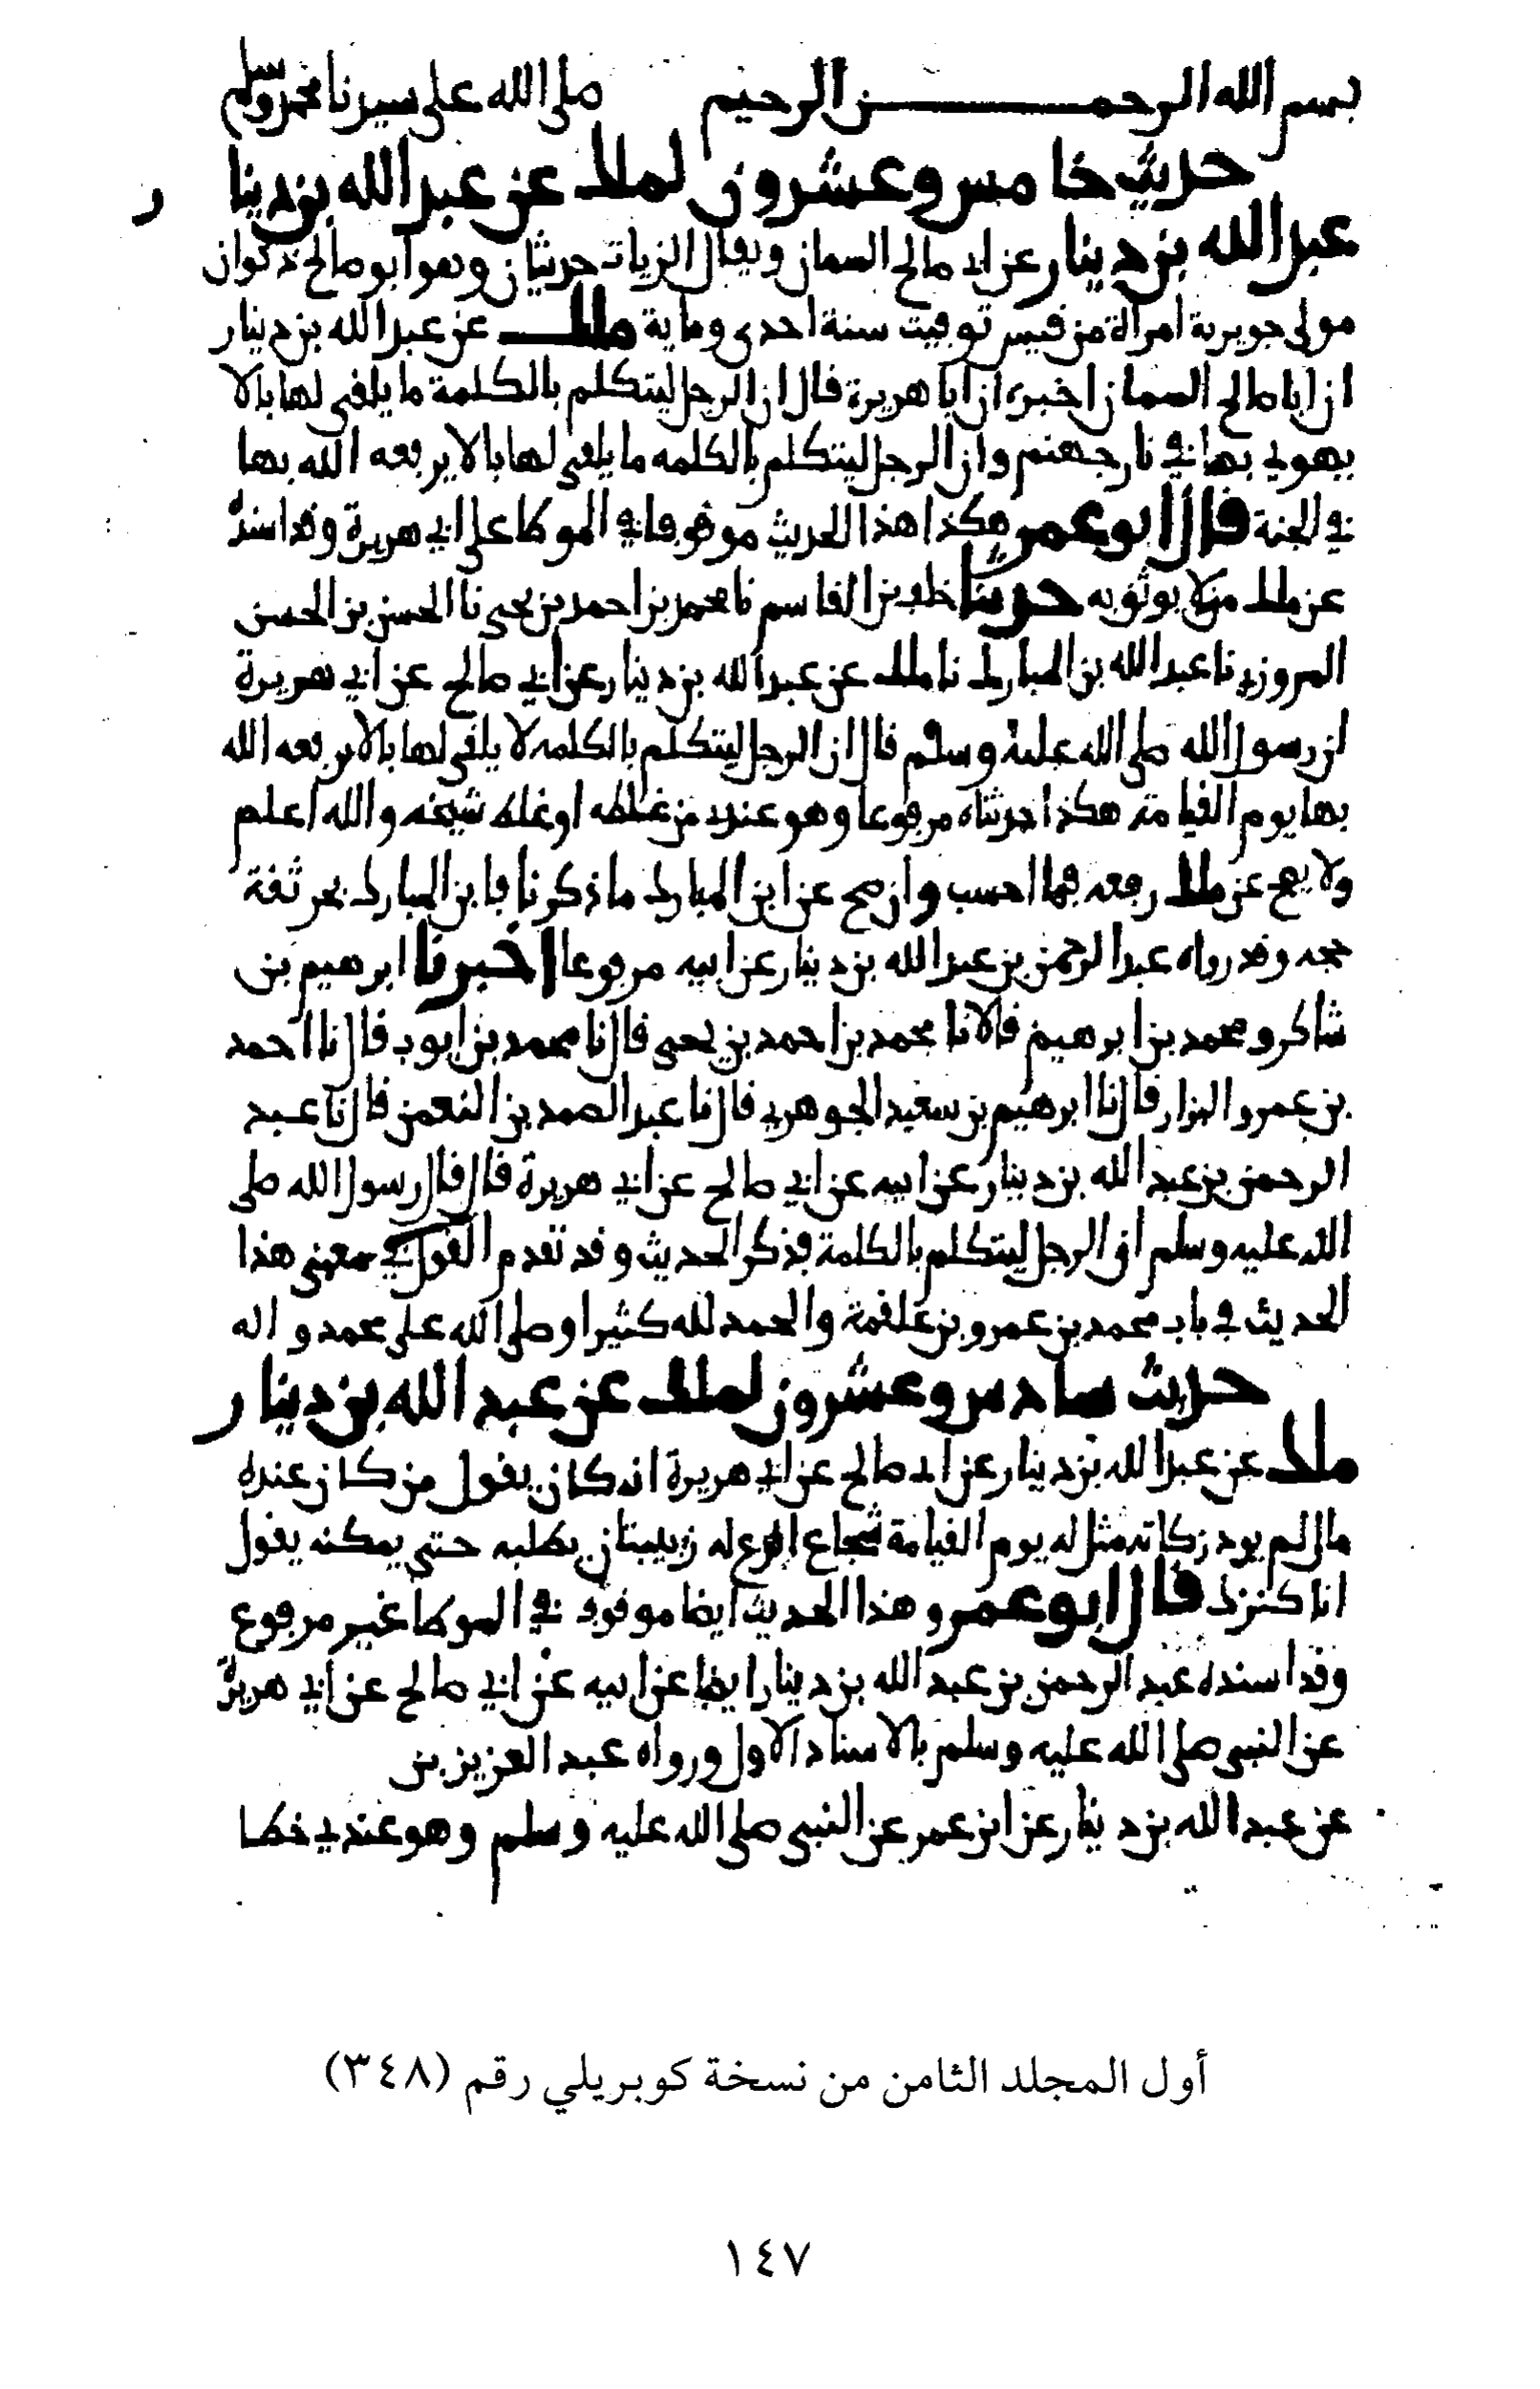 بسم الله الرحمـــن الرحيم صلى الله على سيدنا محمد وسلم
حديث خامس وعشرون لملك عن عبد الله بن دينار
عبد الله بن دينار عن ابي صالح السمان ويقال الزيات حديثان وهو ابو صالح ذكوان
مولى جويرية امراة من قيس توفيت سنة احدى وماية ملك عن عبد الله بن دينار
ان ابا صالح السمان اخبره ان ابا هريرة قال ان الرجل ليتكلم بالكلمة ما يلقى لها بالا
يهوي بها في نار جهنم وان الرجل ليتكلم بالكلمه ما يلقى لها بالا يرفعه الله بها
في الجنة قال ابو عمر هكذا هذا الحديث موقوفا في الموطا على ابي هريرة وقد اسنده
عن ملك من لا يوثق به حدثنا خلف بن القاسم نا محمد بن احمد بن يحيى نا الحسن بن الحسن
المروزي نا عبد الله بن المبارك نا ملك عن عبد الله بن دينار عن ابي صالح عن ابي هريرة
ان رسول الله صلى الله عليه وسلم قال ان الرجل ليتكلم بالكلمه لا يلقى لها بالا يرفعه الله
بها يوم القيامة هكذا حدثناه مرفوعا وهو عندي من غلطه او غلط شيخه والله اعلم
ولا يصح عن ملك رفعه فيما احسب وان صح عن ابن المبارك ما ذكرنا فابن المبارك ثقة
حجه وقد رواه عبد الرحمن بن عبد الله بن دينار عن ابيه مرفوعا اخبرنا ابرهيم بن
شاكر ومحمد بن ابرهيم قالا نا محمد بن احمد بن يحيى قال نا محمد بن ايوب قال نا احمد
بن عمرو البزار قال نا ابرهيم بن سعيد الجوهري قال نا عبد الصمد بن النعمن قال نا عبد
الرحمن بن عبد الله بن دينار عن ابيه عن ابي صالح عن ابي هريرة قال قال رسول الله صلى
الله عليه وسلم ان الرجل ليتكلم بالكلمة فذكر الحديث وقد تقدم القول في معنى هذا
الحديث في باب محمد بن عمرو بن علقمة والحمد لله كثيرا وصلى الله على محمد واله
حديث سادس وعشرون لملك عن عبد الله بن دينار
ملك عن عبد الله بن دينار عن ابي صالح عن ابي هريرة انه كان يقول من كان عنده
مال لم يود زكاته مثل له يوم القيامة شجاع اقرع له زبيبتان يطلبه حتى يمكنه يقول
انا كنزك قال ابو عمر وهذا الحديث ايضا موقوف في الموطا غير مرفوع
وقد اسنده عبد الرحمن بن عبد الله بن دينار ايضا عن ابيه عن ابي صالح عن ابي هريرة
عن النبي صلى الله عليه وسلم بالاسناد الاول ورواه عبد العزيز بن
عن عبد الله بن دينار عن ابن عمر عن النبي صلى الله عليه وسلم وهو عندي خطا
أول المجلد الثامن من نسخة كوبريلي رقم (٣٤٨)
١٤٧